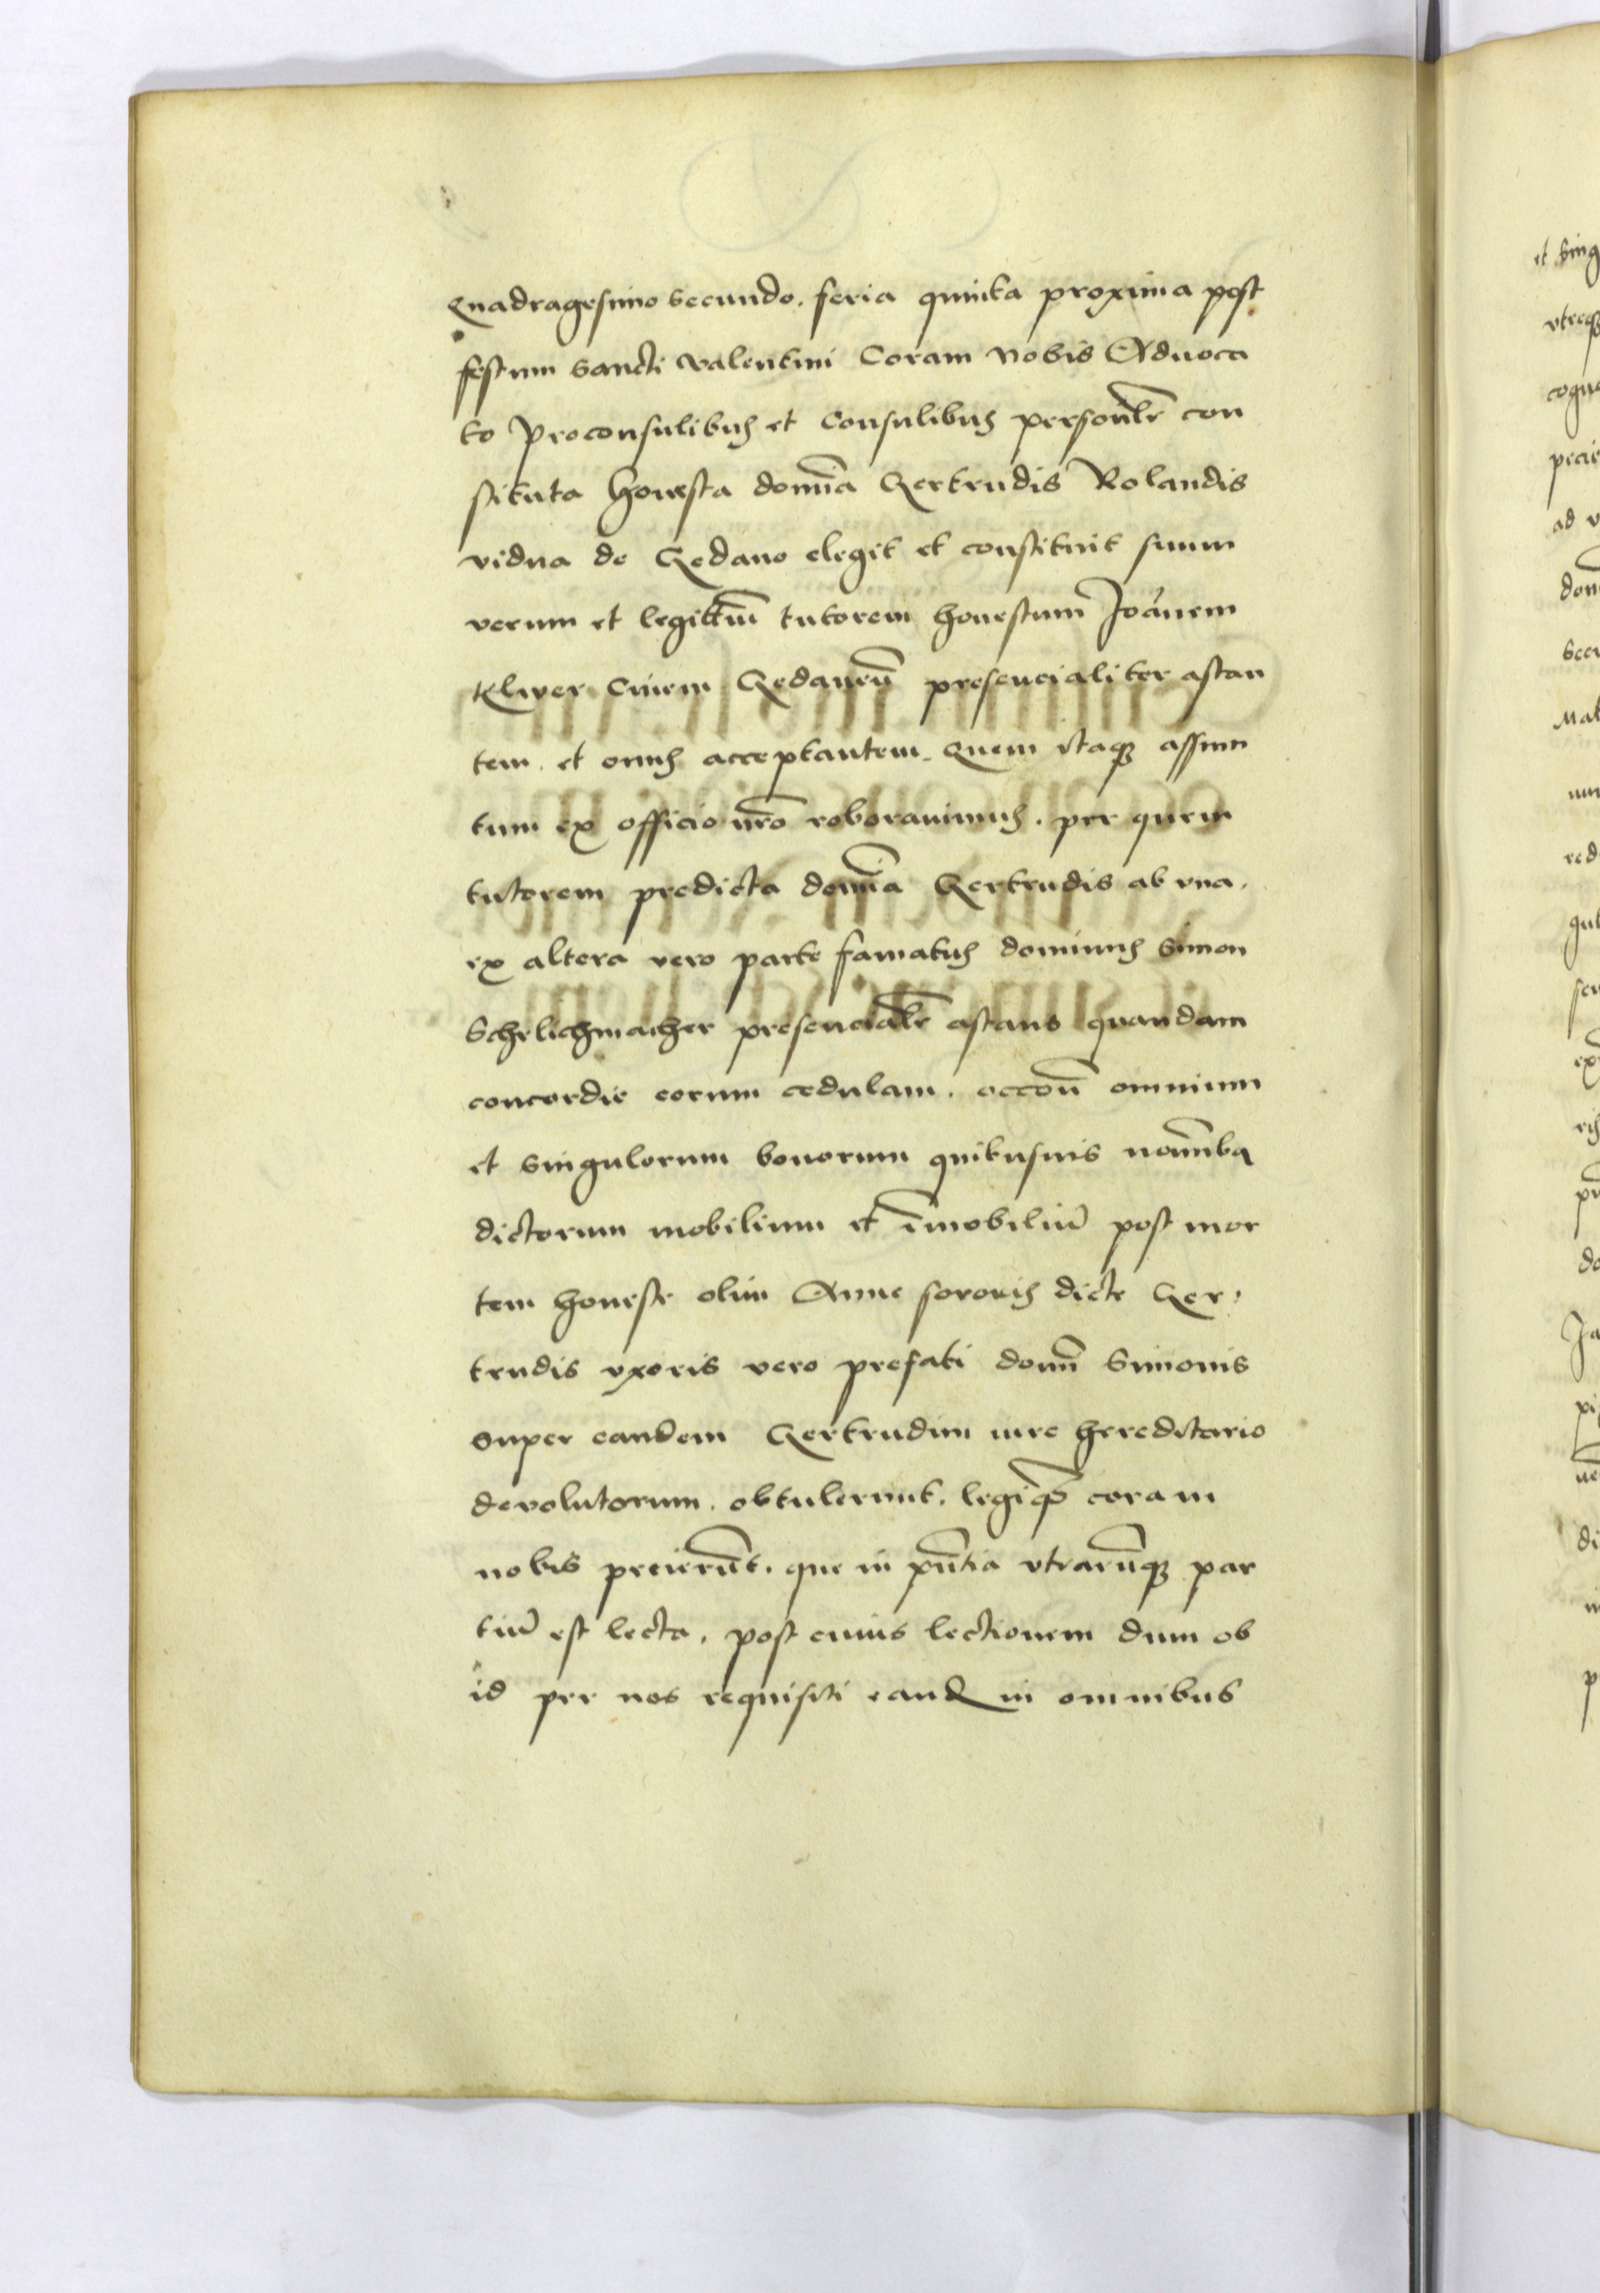 Quadragesimo secundo. feria quinta proxima post
festum sancti valentini Coram nobis Aduoca
to Proconsulibus et Consulibus personal̄r con
stituta honesta domīa Gertrudis Rolandis
vidua de Gedano elegit et constituit suum
verum et legittīu tutorem honestum Joānem
Klwer Ciuem Gedaneñ presencialiter astan
tem. et onus acceptantem. Quem itaqꝫ assum
tum ex officio nr̄o roborauimus. per quem
tutorem predicta domīa Gertrudis ab vna.
ex altera vero parte famatus dominus Simon
Schelichmacher presencial̄r astans quandam
concordie eorum cedulam. occoñ omnium
et singulorum bonorum quibusuis nomībꝫ
dictorum mobilium et īmobiliū post mor
tem honeste olim Anne sororis dicte Ger.
trudis vxoris vero prefati domī Simonis
super eandem Gertrudim iure hereditario
deuolutorum. obtulerunt. legiqꝫ coram
nobis pecierūt. que in pn̄tia vtrarūqꝫ par
tiū est lecta. post cuius lectionem dum ob
id per nos requisiti eand in omnibus
et sing